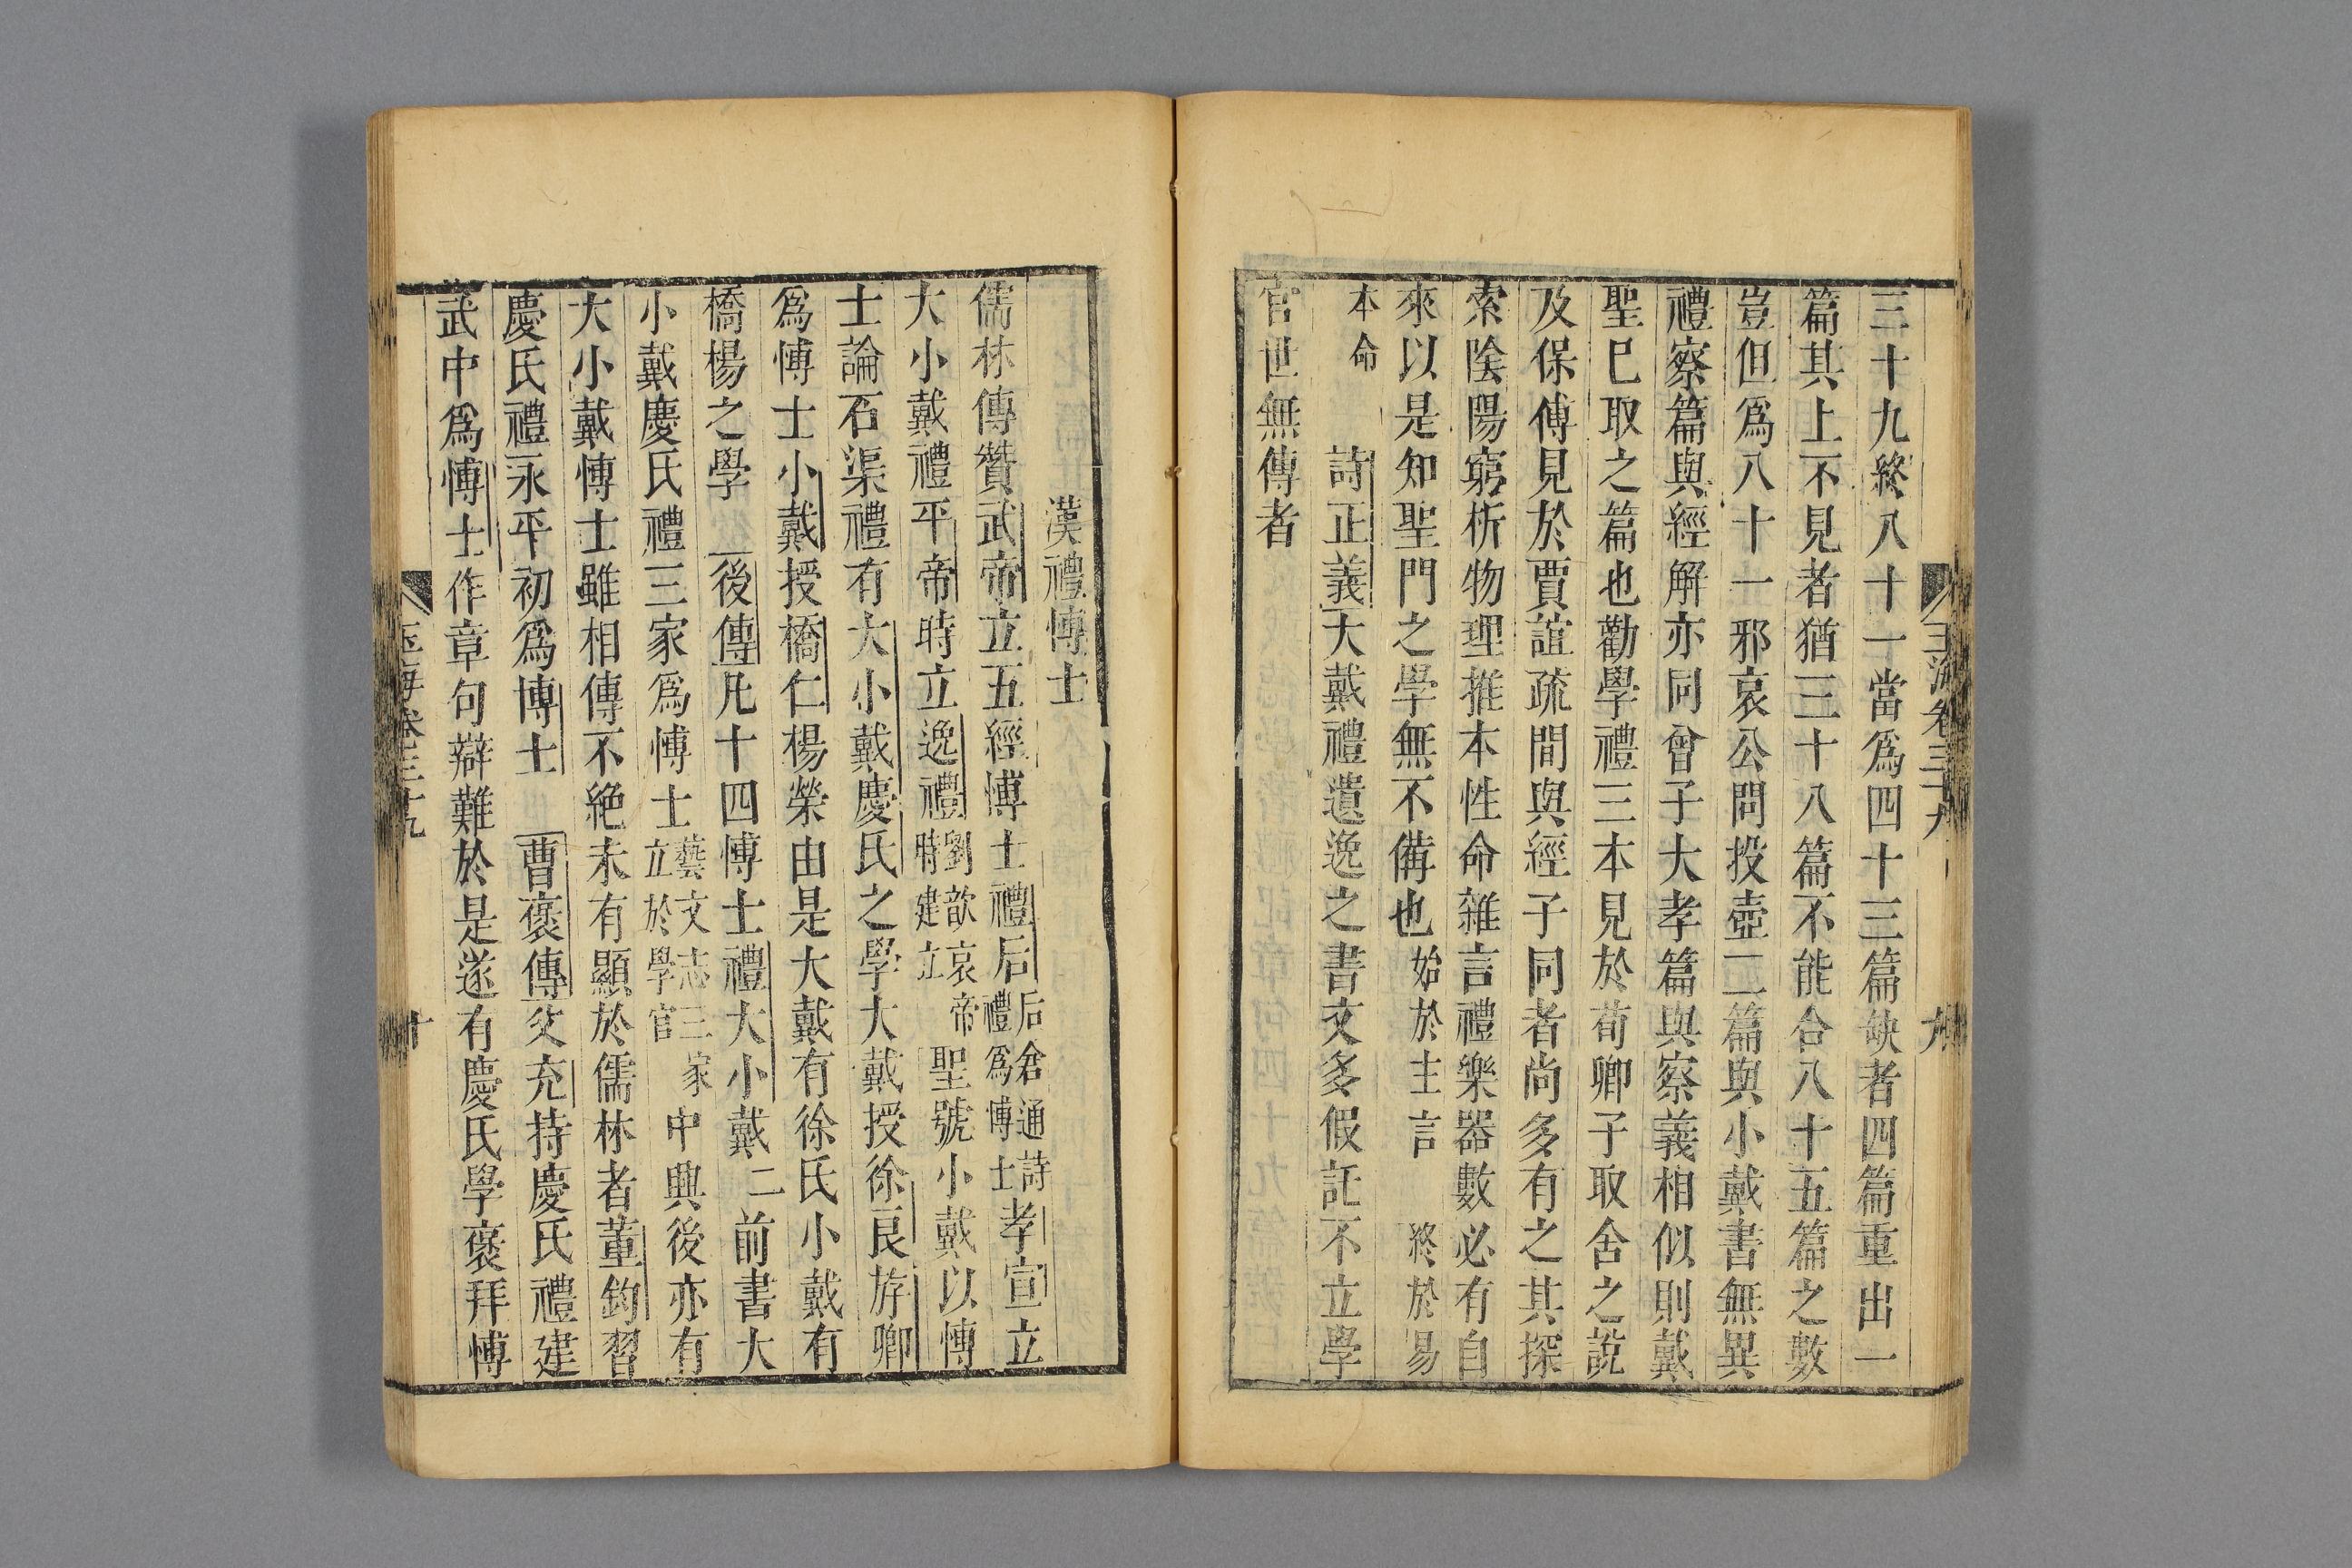 玉海卷三十九
九
三十九終八十一當爲四十三篇缺者四篇重出一
篇其上不見者猶三十八篇不能合八十五篇之數
豈但爲八十一邪哀公問投壺二篇與小戴書無異
禮察篇與經解亦同曾子大孝篇與察義相似則戴
聖已取之篇也勸學禮三本見於荀卿子取舍之說
及保傅見於賈誼疏間與經子同者尚多有之其探
索陰陽窮析物理推本性命雜言禮樂器數必有自
來以是知聖門之學無不備也始於主言終於易
本命
詩正義大戴禮遺逸之書文多假託不立學
官世無傳者
漢禮博士
儒林傳贊武帝立五經博士禮后后倉通詩禮爲博士孝宣立
大小戴禮平帝時立逸禮劉歆哀帝時建立聖號小戴以博
士論石渠禮有大小戴慶氏之學大戴授徐良斿卿
爲博士小戴授橋仁楊榮由是大戴有徐氏小戴有
橋楊之學
後傳凡十四博士禮大小戴二前書大
小戴慶氏禮三家爲博士藝文志三家立於學官中興後亦有
大小戴博士雖相傳不絶未有顯於儒林者董鈞習
慶氏禮永平初爲博士
曹褒傳父充持慶氏禮建
武中爲博士作章句辯難於是遂有慶氏學褒拜博
玉海卷三十九
十